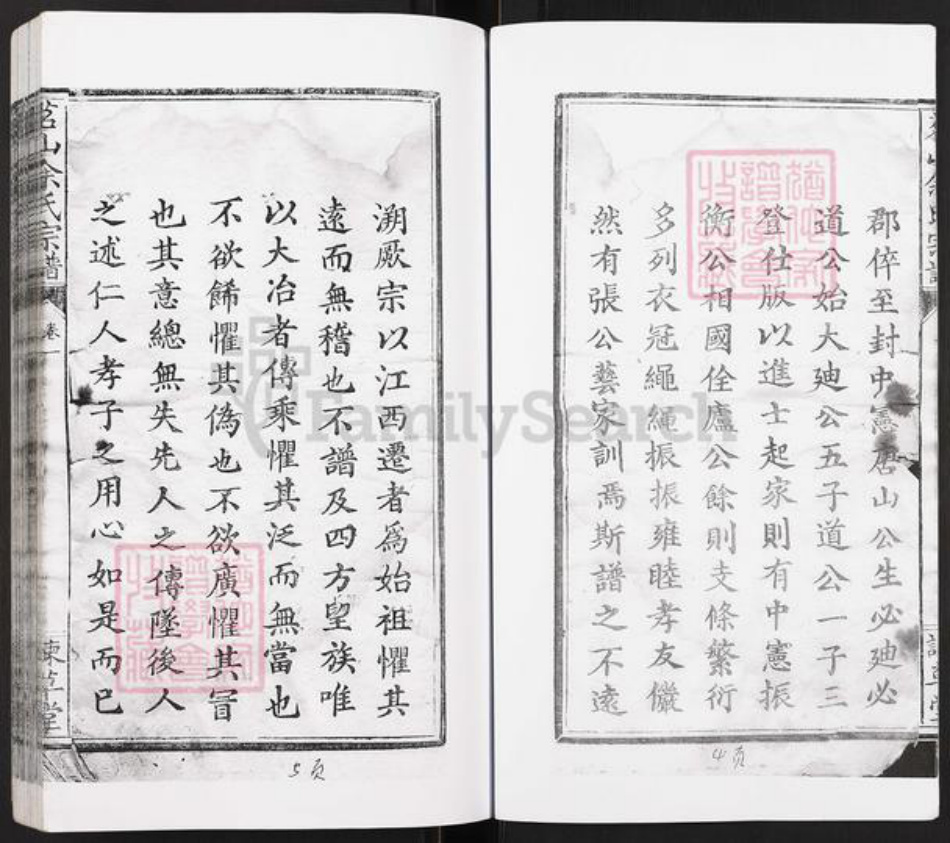 郡倅至封中憲唐山公生必廸必
道公始大廸公五子道公一子三
登仕版以進士起家則有中憲振
衡公相國佺廬公餘則支條繁衍
多列衣冠繩繩振振雍睦孝友儼
然有張公藝家訓焉斯譜之不遠
4页
溯厥宗以江西遷者爲始祖懼其
遠而無稽也不譜及四方望族唯
以大冶者傳乘懼其泛而無當也
不欲餙懼其偽也不欲廣懼其冒
也其意總無失先人之傳墜後人
之述仁人孝子之用心如是而已
5页
茗山余氏宗譜
卷一
諫草堂
FamilySearch